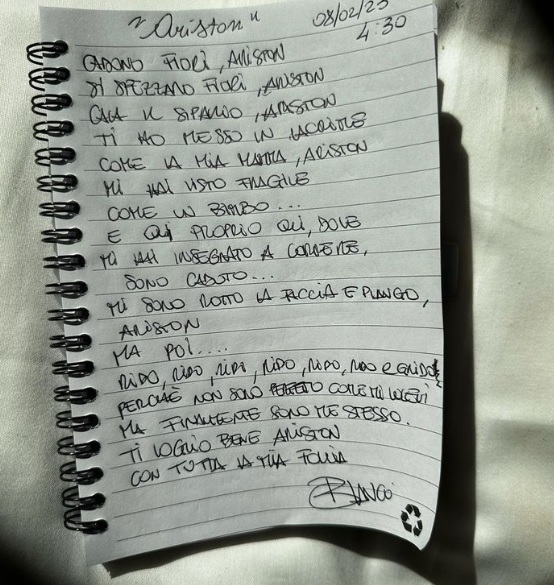 "Ariston" 08/02/23
4:30
CADONO FIORI, ARISTON
SI SPEZZANO FIORI, ARISTON
CALA IL SIPARIO, ARISTON
TI HO MESSO IN LACRIME
COME LA MIA MAMMA, ARISTON
MI HAI VISTO FRAGILE
COME UN BIMBO...
E QUI PROPRIO QUI, DOVE
MI HAI INSEGNATO A CORRERE,
SONO CADUTO...
MI SONO ROTTO LA FACCIA E PIANGO,
ARISTON
MA POI....
RIDO, RIDO, RIDO, RIDO, RIDO, RIDO E GRIDO
PERCHÈ NON SOLO COME MI VOLEVI
MA FINALMENTE SONO ME STESSO.
TI VOGLIO BENE ARISTON
CON TUTTA LA MIA FOLLIA
BLANCO